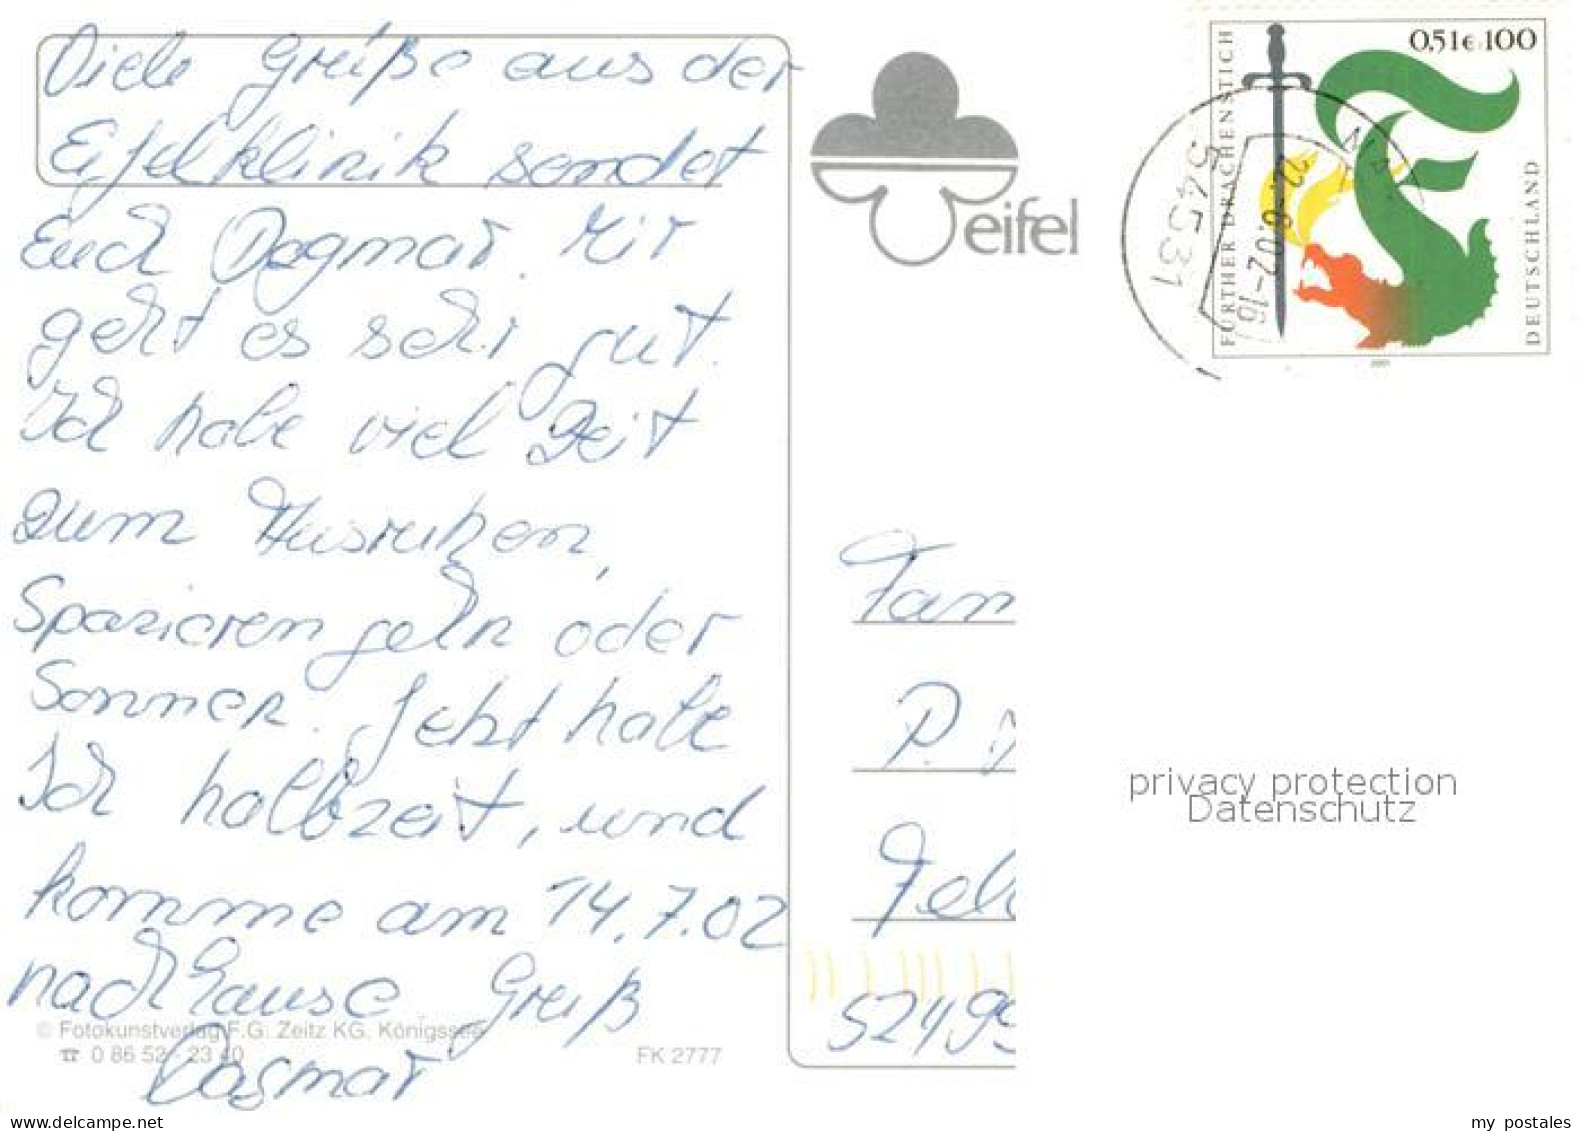 Viele Grüße aus der
Eifelklinik sendet
Euch Dagmar. Mir
geht es sehr gut.
Ich habe viel Zeit
zum Ausruhen,
Spazieren gehn oder
Sonnen. Jetzt habe
Ich halbzeit, und
komme am 14.7.02
nach Hause Gruß
Dagmar
© Fotokunstverlag F.G. Zeitz KG, Königssee
☎ 0 86 52 - 23 40
FK 2777
eifel
FURTHER DRACHENSTICH
0,51€ 100
DEUTSCHLAND
2001
54531
22.-6.02-16
Fam
P.
52499
privacy protection
Datenschutz
www.delcampe.net
my postales